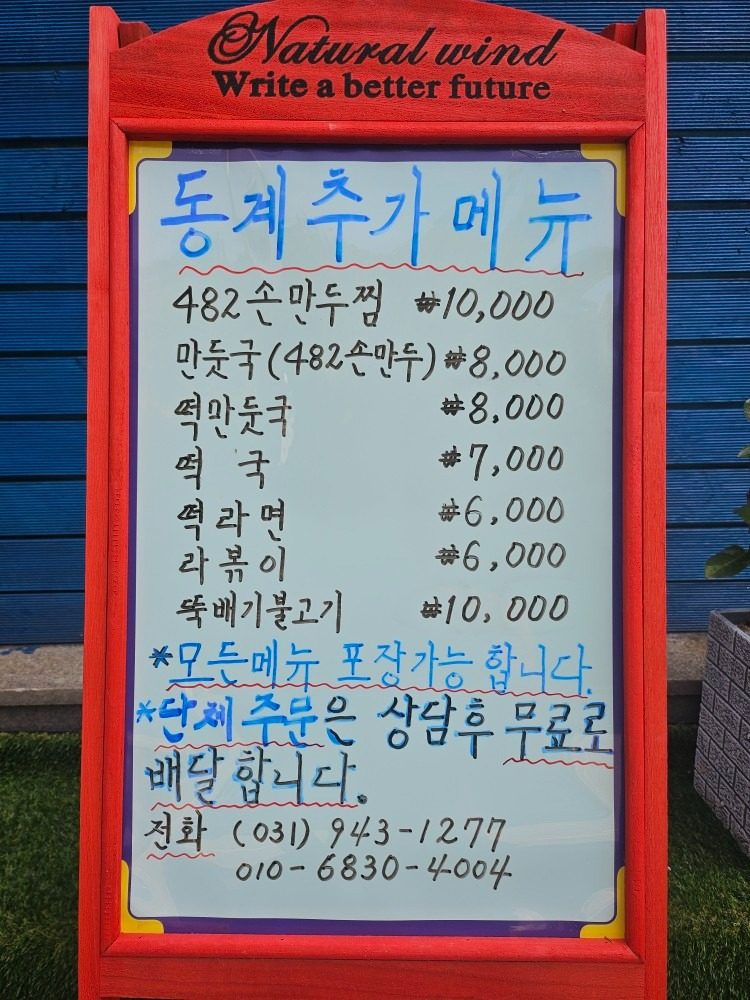 Natural wind
Write a better future
동계추가메뉴
482손만두찜 ₩10,000
만둣국(482손만두) ₩8,000
떡만둣국 ₩8,000
떡국 ₩7,000
떡라면 ₩6,000
라볶이 ₩6,000
뚝배기불고기 ₩10,000
*모든메뉴 포장가능 합니다.
*단체주문은 상담후 무료로
배달합니다.
전화 (031) 943-1277
010-6830-4004